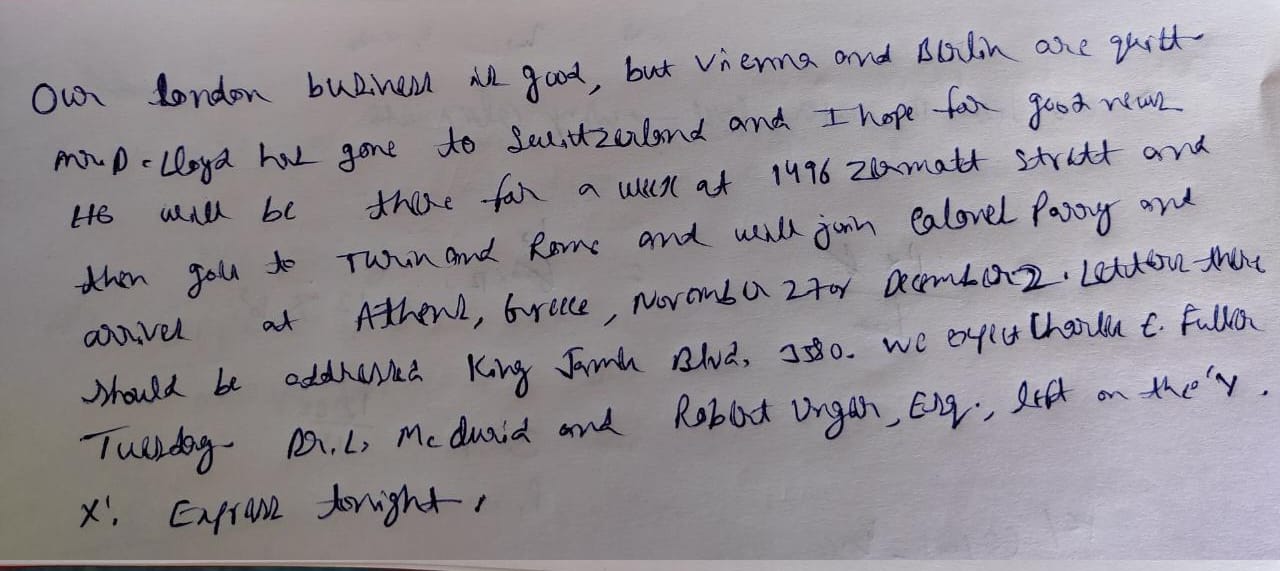 Our london business is good, but Vienna and Berlin are quitt
Mr. D. Lloyd has gone to Switzerland and I hope for good news
He will be there for a week at 1496 Zermatt Strett and
then goes to Turin and Rome and will join Calonel Parry and
arrives at Athens, Greece, November 27 or December 2. Letters there
should be addressed King James Blvd, 3580. We expect Charles E. Fuller
Tuesday. Dr. L. Mc durid and Robert Ungar, Esq., left on the 'Y.
X'. Express tonight.